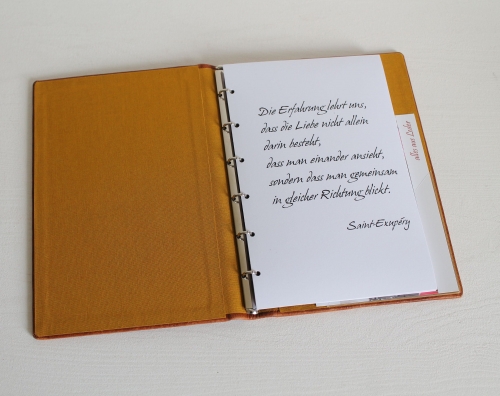 Die Erfahrung lehrt uns,
dass die Liebe nicht allein
darin besteht,
dass man einander ansieht,
sondern dass man gemeinsam
in gleicher Richtung blickt.
Saint-Exupéry
alles aus Liebe